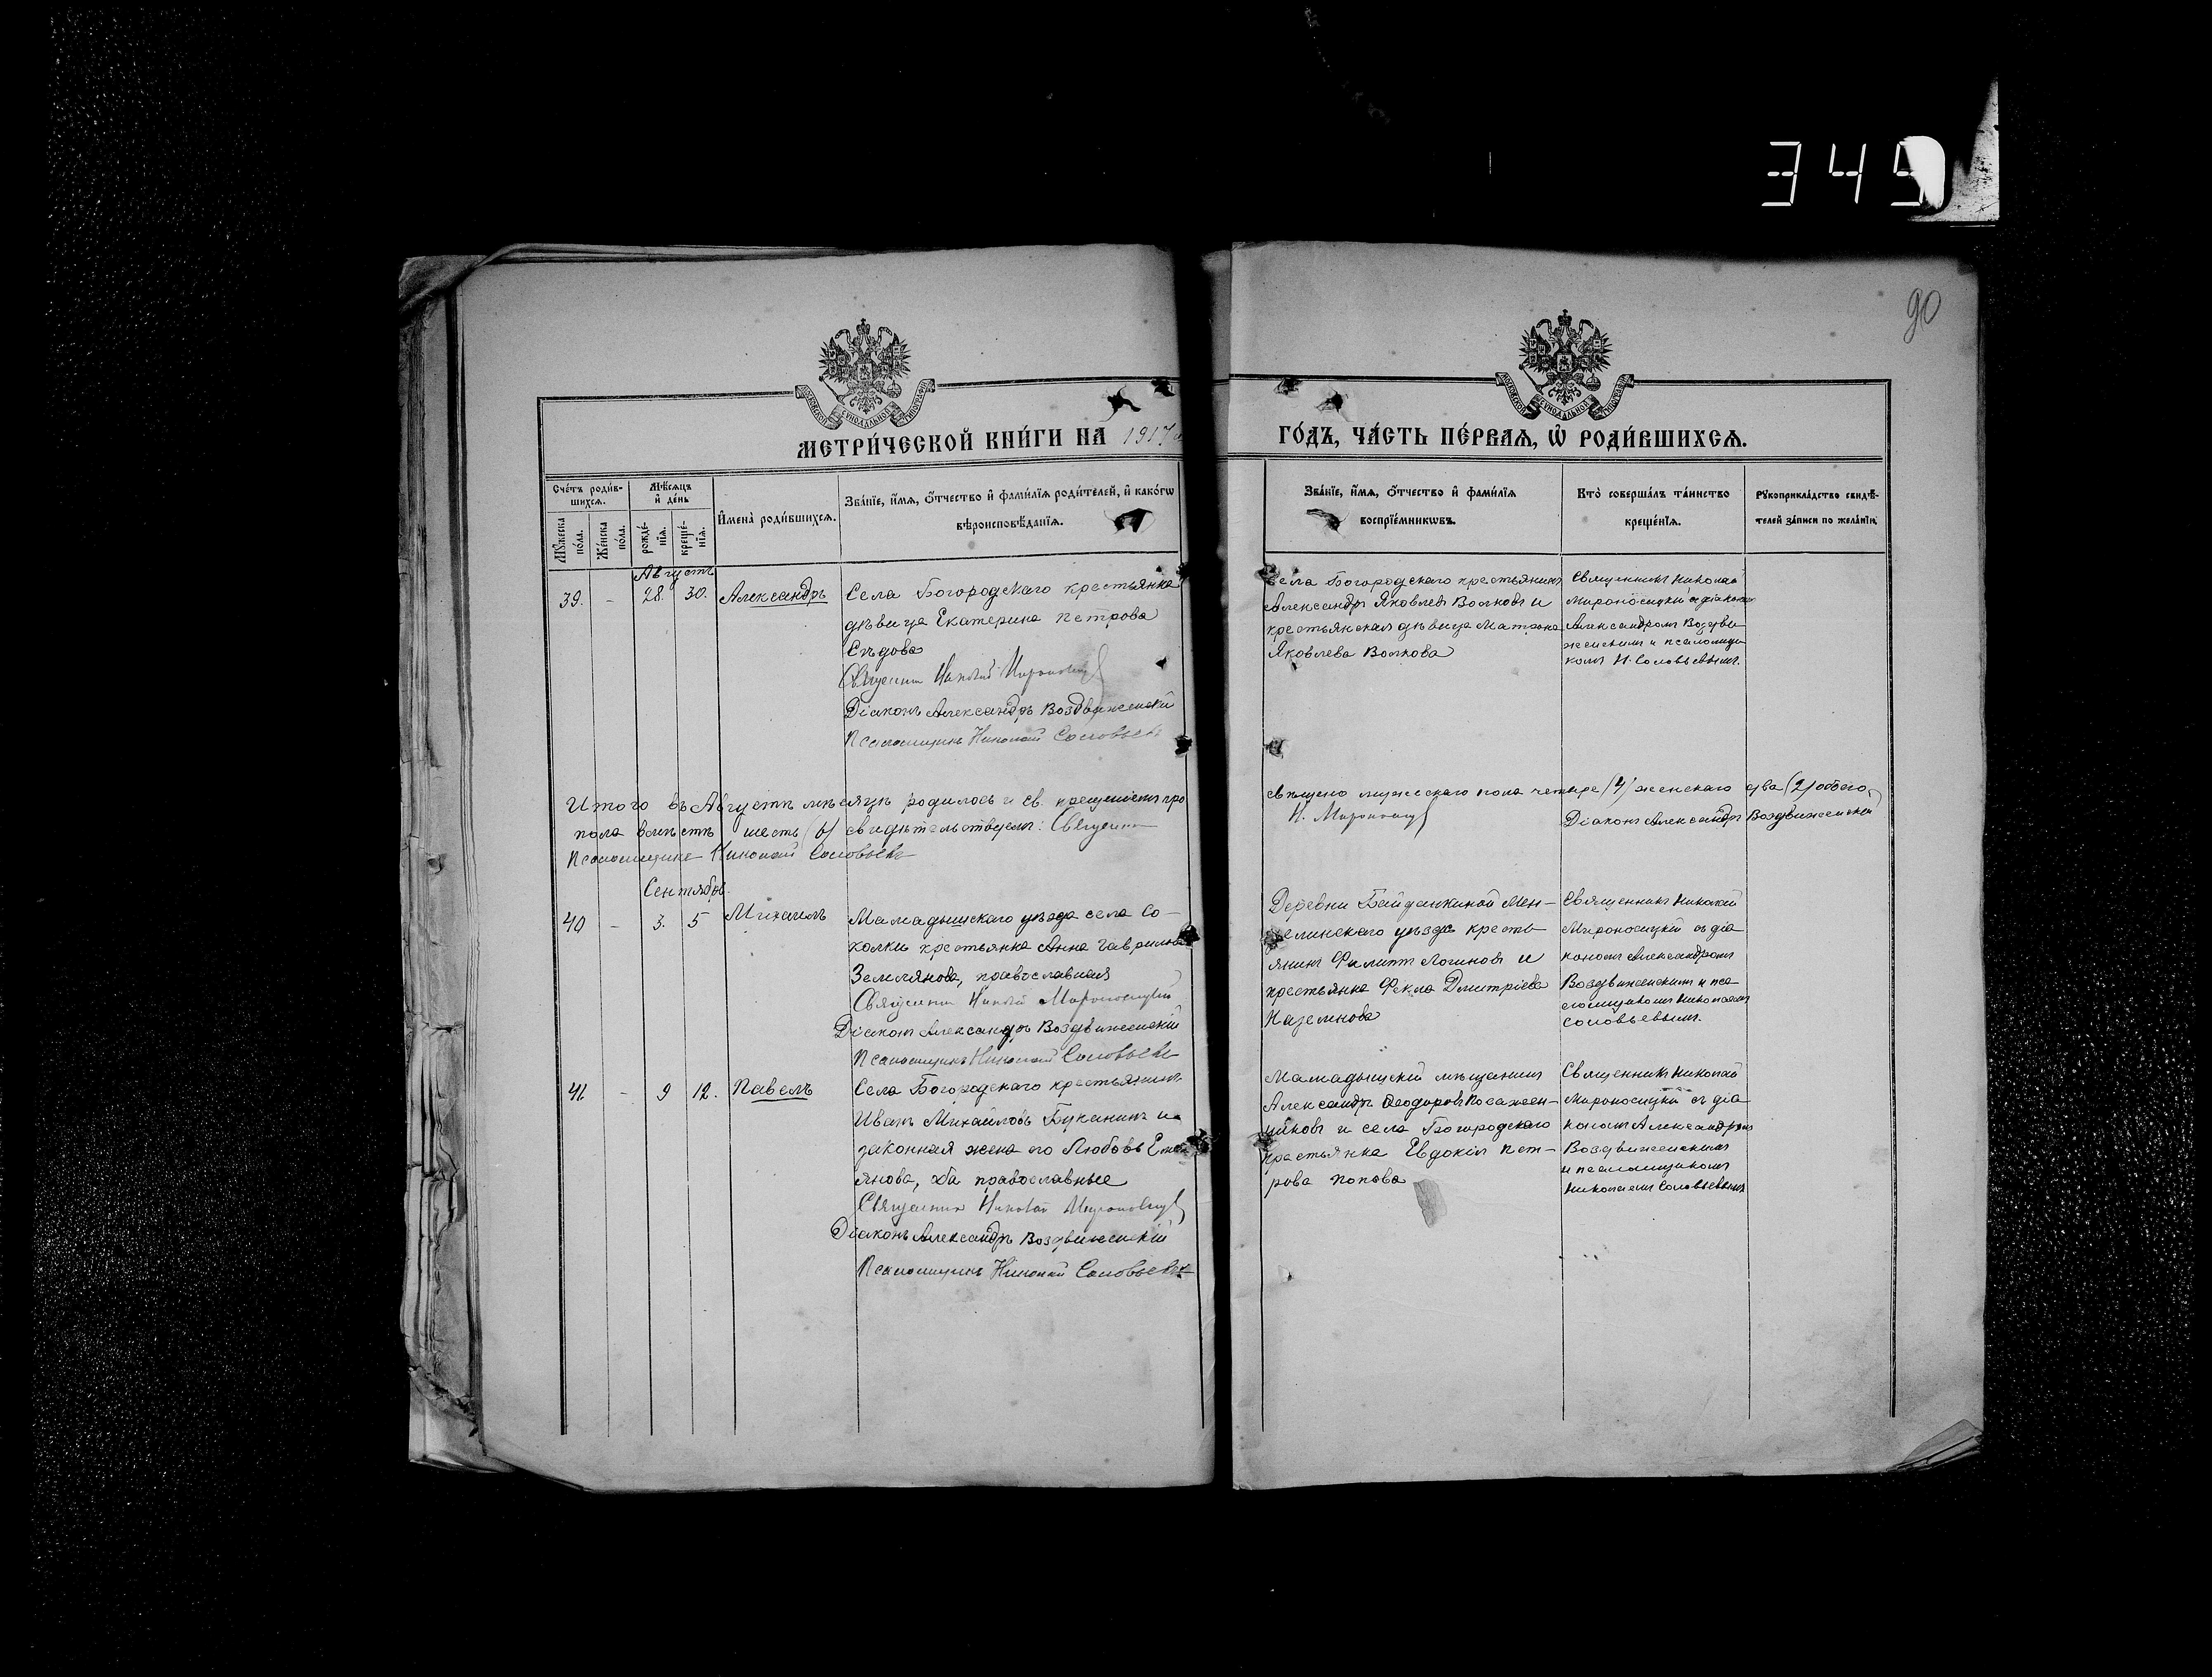 349
90
МЕТРИ́ЧЕСКОЙ КНИ́ГИ НА 1917
ГО́ДЪ, ЧА́СТЬ ПЕ́РВАѦ, Ѡ҆ РОДИ́ВШИХСѦ.
Сче́тъ роди́в-
шихсѧ.
Мѣ́сѧцъ
и҆ де́нь
Мꙋ́жеска
по́ла.
Же́нска
по́ла.
рожде́-
нїѧ.
креще́-
нїѧ.
И҆мена̀ роди́вшихсѧ.
Зва́нїе, и҆́мѧ, ѻ҆́тчество и҆ фами́лїѧ роди́телей, и҆ како́гѡ
вѣроисповѣ́данїѧ.
Зва́нїе, и҆́мѧ, ѻ҆́тчество и҆ фами́лїѧ
воспрїе́мникѡвъ.
Кто̀ соверша́лъ та́инство
креще́нїѧ.
Рꙋкоприкла́дство свидѣ́-
телей за́писи по жела́нїю.
Августъ
39. - 28. 30. Александръ
Села Богородскаго крестьянка
дѣвица Екатерина Петрова
Сѣдова
Священникъ Николай Мироносицкій
Діаконъ Александръ Воздвиженскій
Псаломщикъ Николай Соловьевъ
Села Богородскаго крестьянинъ
Александръ Яковлевъ Волковъ и
крестьянская дѣвица Матрона
Яковлева Волкова
Священникъ Николай
Мироносицкій съ діакономъ
Александромъ Воздви-
женскимъ и псаломщи-
комъ Н. Соловьевымъ.
Итого въ Августѣ мѣсяцѣ родилось и св. крещеніемъ про
свѣщено мужескаго пола четыре (4) женскаго два (2) обоего
пола вмѣстѣ шесть (6) свидѣтельствуемъ: Священникъ
Н. Мироносицкій Діаконъ Александръ Воздвиженскій
Псаломщикъ Николай Соловьевъ
Сентябрь.
40 - 3. 5 Михаилъ
Мамадышскаго уѣзда села Со-
колки крестьянка Анна Гаврилова
Землянова, православная
Священникъ Николай Мироносицкій
Діаконъ Александръ Воздвиженскій
Псаломщикъ Николай Соловьевъ
Деревни Байданкиной Мен-
зелинскаго уѣзда кресть-
янинъ Филиппъ Логиновъ и
крестьянка Фекла Дмитріева
Священникъ Николай
Мироносицкій съ діа-
кономъ Александромъ
Воздвиженскимъ и пса-
ломщикомъ Николаемъ
Соловьевымъ.
41. - 9 12. Павелъ
Села Богородскаго крестьянинъ
Иванъ Михайловъ Буканинъ и
законная жена его Любовь Емель
янова, оба православные
Священникъ Николай Мироносицкій
Діаконъ Александръ Воздвиженскій
Псаломщикъ Николай Соловьевъ
Мамадышскій мѣщанинъ
Александръ Ѳеодоровъ Посажен-
никовъ и села Богородскаго
крестьянка Евдокія Пет-
рова Попова
Священникъ Николай
Мироносицкій съ діа-
кономъ Александромъ
Воздвиженскимъ
и псаломщикомъ
Николаемъ Соловьевымъ